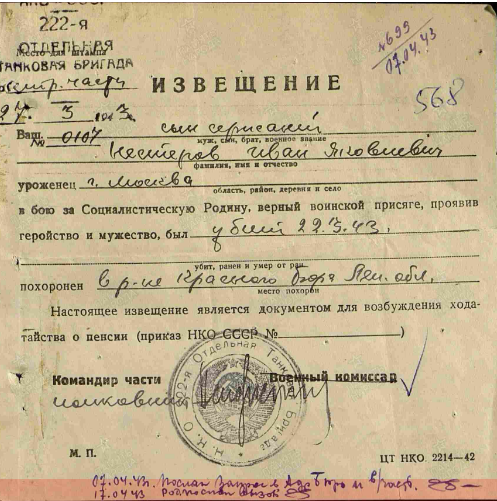 НКО СССР
222-я
ОТДЕЛЬНАЯ
Место для штампа
ТАНКОВАЯ БРИГАДА
№ 699
07.04.43
ИЗВЕЩЕНИЕ
568
27. 3 1943.
№ 0107
Ваш сын сержант
муж, сын, брат, военное звание
Нестеров Иван Яковлевич
фамилия, имя и отчество
уроженец г. Москва
область, район, деревня и село
в бою за Социалистическую Родину, верный воинской присяге, проявив
геройство и мужество, был убит 22.3.43.
убит, ранен и умер от ран
похоронен в р-не Красного Бора Лен. обл.
место похорон
Настоящее извещение является документом для возбуждения хода-
тайства о пенсии (приказ НКО СССР № )
222-я Отдельная Танковая Бригада
Н.К.О.
Командир части Военный комиссар
полковник
М. П. ЦТ НКО 2214—42
07.04.43. Послан запрос в Адр. бюро и
17.04.43